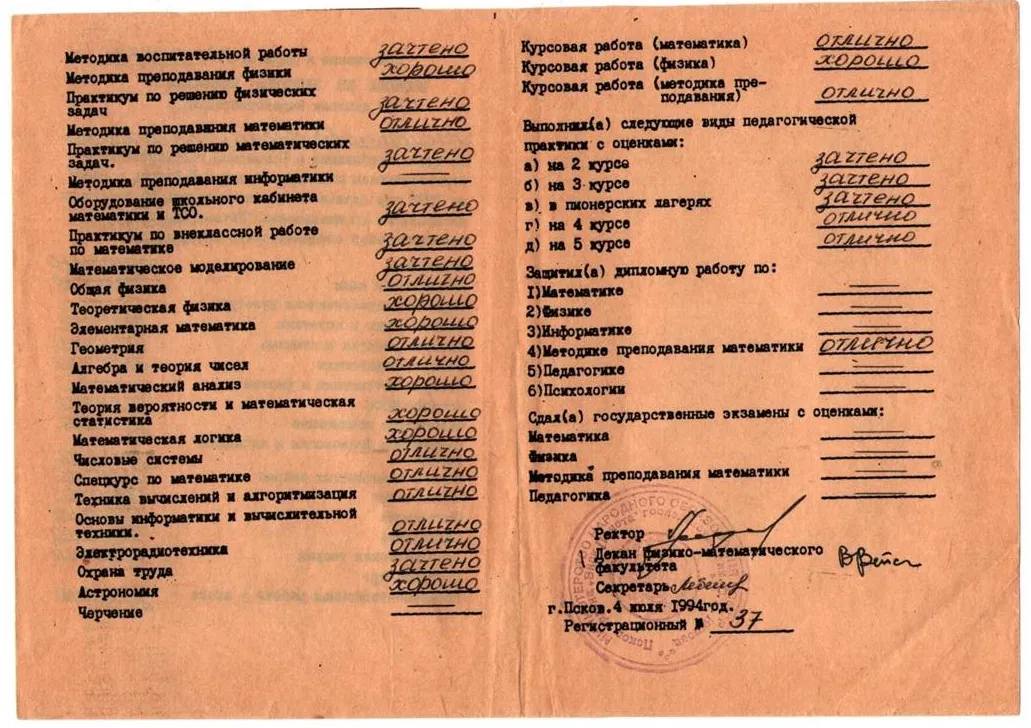 Методика воспитательной работы зачтено
Методика преподавания физики хорошо
Практикум по решению физических
задач зачтено
Методика преподавания математики отлично
Практикум по решению математических
задач. зачтено
Методика преподавания информатики
Оборудование школьного кабинета
математики и ТСО. зачтено
Практикум по внеклассной работе
по математике зачтено
Математическое моделирование зачтено
Общая физика отлично
Теоретическая физика хорошо
Элементарная математика хорошо
Геометрия отлично
Алгебра и теория чисел отлично
Математический анализ хорошо
Теория вероятности и математическая
статистика хорошо
Математическая логика хорошо
Числовые системы отлично
Спецкурс по математике отлично
Техника вычислений и алгоритмизация отлично
Основы информатики и вычислительной
техники. отлично
Электрорадиотехника отлично
Охрана труда зачтено
Астрономия хорошо
Черчение
Курсовая работа (математика) отлично
Курсовая работа (физика) хорошо
Курсовая работа (методика пре-
подавания) отлично
Выполнил(а) следующие виды педагогической
практики с оценками:
а) на 2 курсе зачтено
б) на 3 курсе зачтено
в) в пионерских лагерях зачтено
г) на 4 курсе отлично
д) на 5 курсе отлично
Защитил(а) дипломную работу по:
1)Математике
2)Физике
3)Информатике
4)Методике преподавания математики отлично
5)Педагогике
6)Психологии
Сдал(а) государственные экзамены с оценками:
Математика
Физика
Методика преподавания математики
Педагогика
Ректор
Декан физико-математического
факультета
Секретарь
г.Псков.4 июля 1994год.
Регистрационный № 37